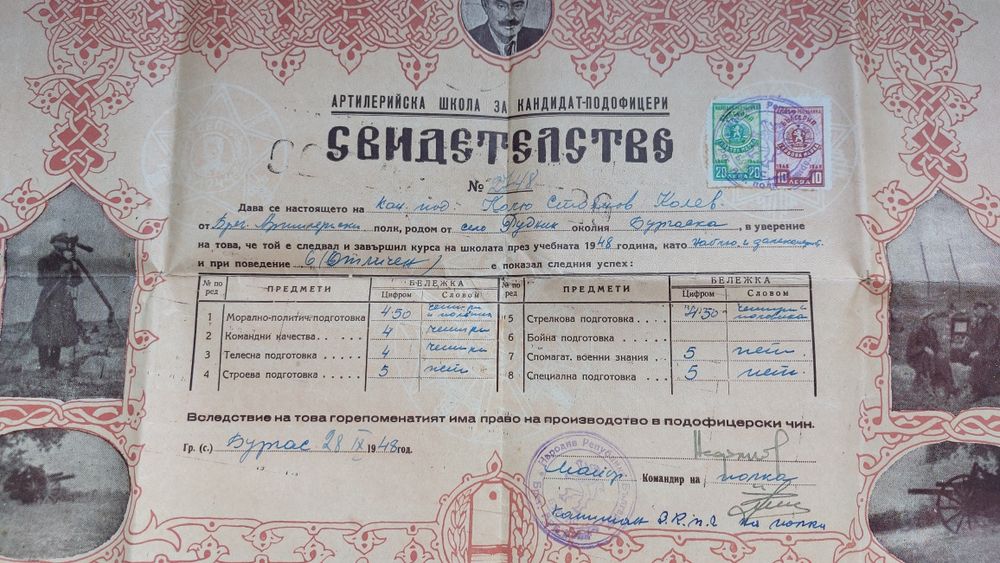 АРТИЛЕРИЙСКА ШКОЛА ЗА КАНДИДАТ-ПОДОФИЦЕРИ
СВИДЕТЕЛСТВО
№ 2748
Дава се настоящето на кан. под. Колю Стоянов Колев
от Брег. Артилерийски полк, родом от село Рудник околия Бургаска, в уверение
на това, че той е следвал и завършил курса на школата през учебната 1948 година, като
и при поведение 6 (Отличен) е показал следния успех:
№ по ред ПРЕДМЕТИ БЕЛЕЖКА Цифром Словом № по ред ПРЕДМЕТИ БЕЛЕЖКА Цифром Словом
1 Морално-политич. подготовка 4 50 четири и половина 5 Стрелкова подготовка 4 50 четири и половина
2 Командни качества 4 четири 6 Бойна подготовка
3 Телесна подготовка 4 четири 7 Спомагат. военни знания 5 пет
4 Строева подготовка 5 пет 8 Специална подготовка 5 пет
Вследствие на това горепоменатият има право на производство в подофицерски чин.
Гр. (с.) Бургас 28 IX 1948 год.
Майор Командир на полка
Капитан З. К. п. ч. на полка
20 ЛЕВА 20
10 ЛЕВА 10